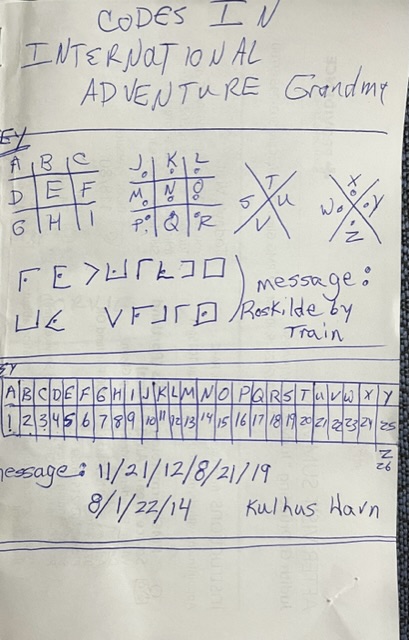 CODES IN
INTERNATIONAL
ADVENTURE Grandma
EY
A B C
D E F
G H I
J K L
M N O
P Q R
S T U V
W X Y Z
message:
Roskilde by
Train
EY
A B C D E F G H I J K L M N O P Q R S T U V W X Y
1 2 3 4 5 6 7 8 9 10 11 12 13 14 15 16 17 18 19 20 21 22 23 24 25
Z
26
essage: 11/21/12/8/21/19
8/1/22/14 Kulhus Havn